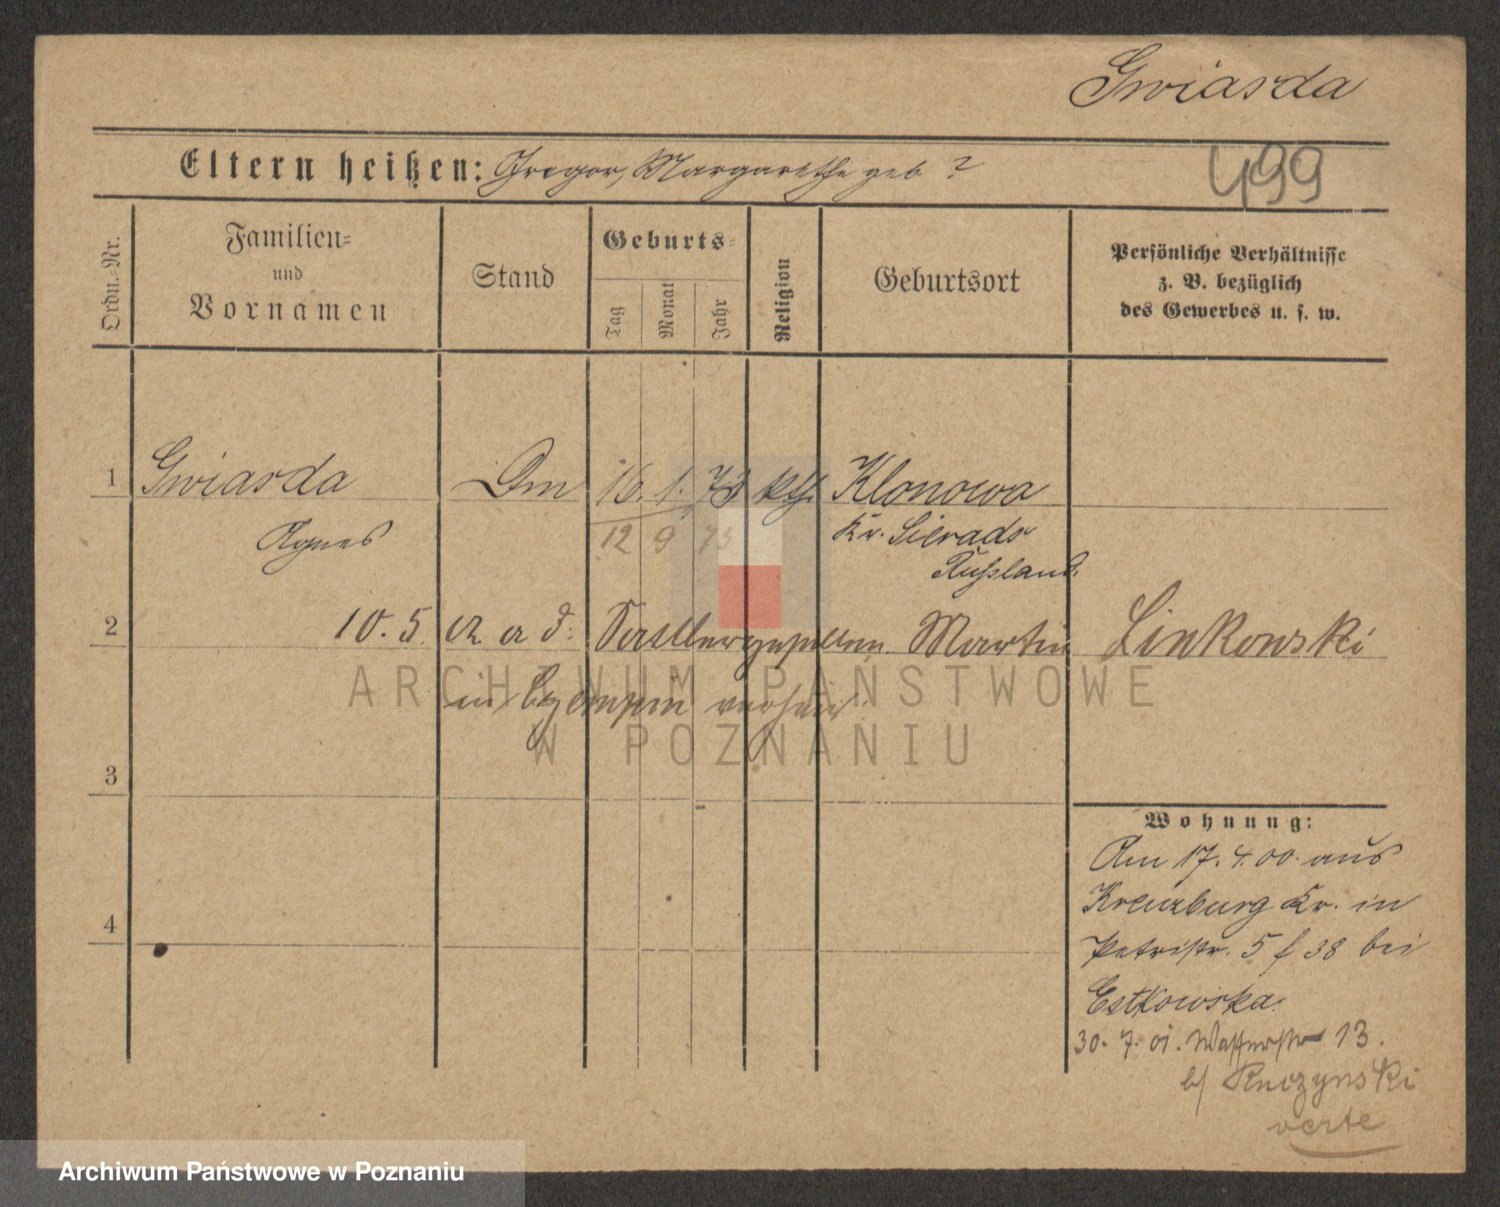 Gwiasda
Eltern heißen: Gregor, Margarethe geb ?
499
Ordn.-Nr.
Familien-
und
Vornamen
Stand
Geburts-
Tag
Monat
Jahr
Religion
Geburtsort
Persönliche Verhältnisse
z. B. bezüglich
des Gewerbes u. s. w.
1 Gwiasda 16. 1. 73 kth. Klonowa
Agnes 12 9 73 Kr. Sieradz
Rußland.
2 10.5. Sattlergesellen Martin Linkowski
in
ARCHIWUM PAŃSTWOWE
W POZNANIU
3
Wohnung:
Am 17. 4. 00. aus
Kreuzburg Kr. in
Petristr. 5 f 38 bei
Estkowska.
30. 7. 01. Wasserstr 13.
b/ Ruczynski
verte
4
Archiwum Państwowe w Poznaniu